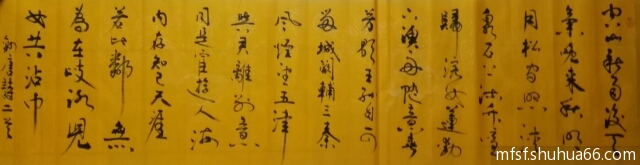 空山新雨後天
氣晚來秋明
月松間照清
泉石上流竹喧
歸浣女蓮動
下漁舟隨意春
芳歇王孫自可
留城闕輔三秦
風煙望五津
與君離別意
同是宦遊人海
內存知己天涯
若比鄰無
為在歧路兒
女共沾巾
録唐詩二首
mfsf.shuhua66.com